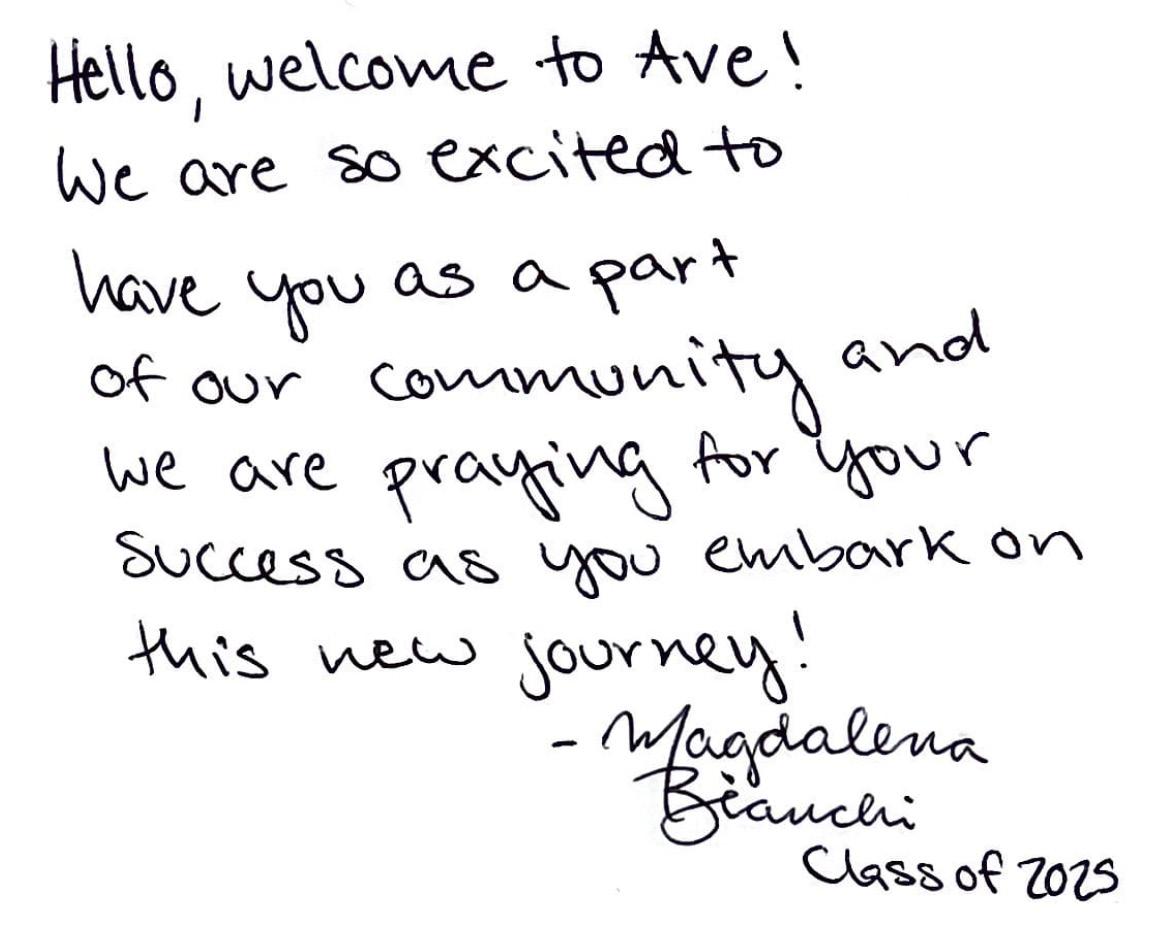 Hello, welcome to Ave!
We are so excited to
have you as a part
of our community and
we are praying for your
success as you embark on
this new journey!
- Magdalena
Bianchi
Class of 2025